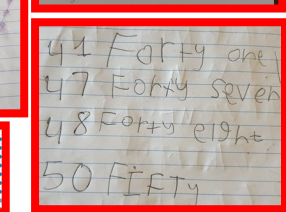 41 Forty one
47 Forty seven
48 Forty eight
50 FIFTy